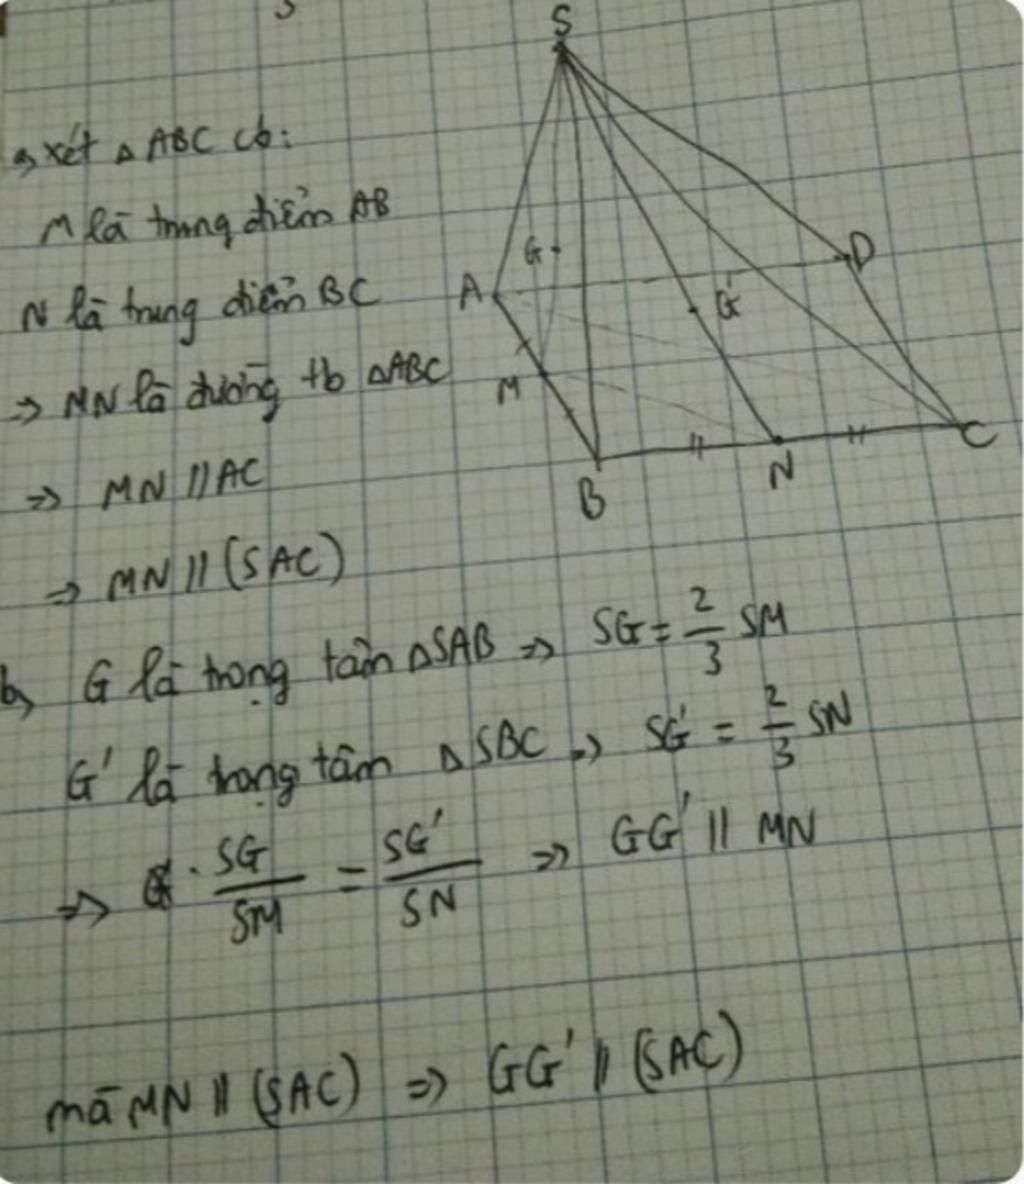 S
a, xét △ABC có:
M là trung điểm AB
N là trung điểm BC
=> MN là đường tb △ABC
=> MN // AC
=> MN // (SAC)
G
A
D
G'
M
B
N
C
b, G là trọng tâm △SAB => SG = 2/3 SM
G' là trọng tâm △SBC => SG' = 2/3 SN
=> SG/SM = SG'/SN => GG' // MN
mà MN // (SAC) => GG' // (SAC)